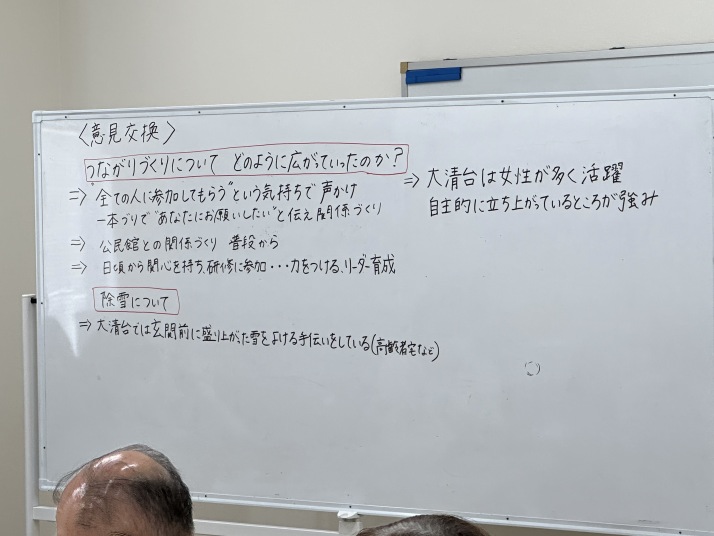 〈意見交換〉
つながりづくりについて どのように広がっていったのか？
⇒ "全ての人に参加してもらう"という気持ちで 声かけ
一本づりで"あなたにお願いしたい"と伝え関係づくり
⇒ 公民館との関係づくり 普段から
⇒ 日頃から関心を持ち、研修に参加・・・力をつける、リーダー育成
⇒ 大清台は女性が多く活躍
自主的に立ち上がっているところが強み
除雪について
⇒ 大清台では玄関前に盛り上がた雪をよける手伝いをしている(高齢者宅など)